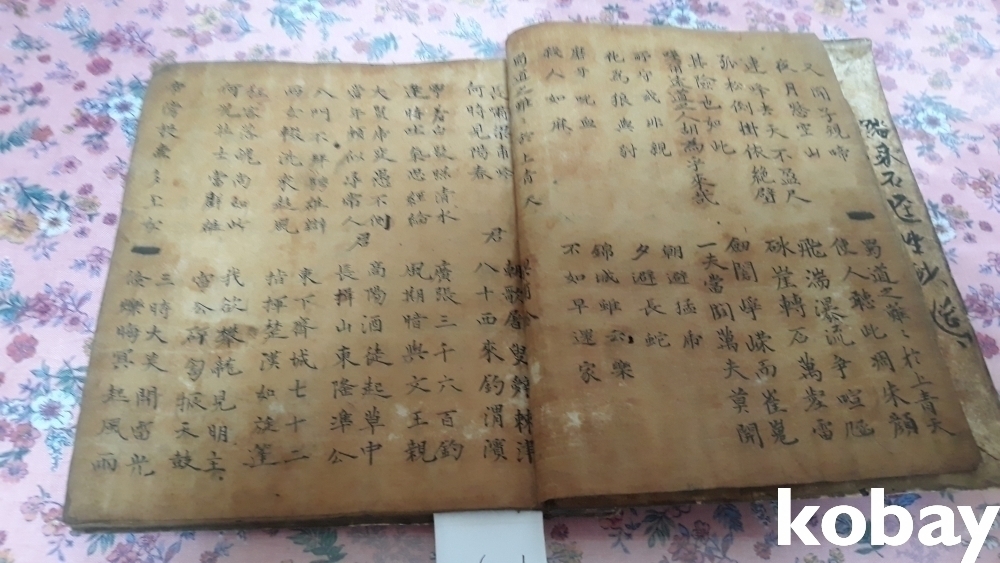 又聞子規啼
夜月愁空山
蜀道之難〻於上青天
使人聽此凋朱顔
連峰去天不盈尺
孤松倒掛依絶壁
飛湍瀑流爭喧豗
砯崖轉石萬壑雷
其險也如此
嗟爾遠道人胡爲乎來哉
劒閣崢嶸而崔嵬
一夫當関萬夫莫開
所守或非親
化爲狼與豺
朝避猛虎
夕避長蛇
磨牙吮血
殺人如麻
錦城雖云樂
不如早還家
蜀道之難〻於上青天
長嘯梁甫吟
何時見陽春
君
朝歌屠叟辭棘津
八十西來釣渭濱
寧羞白髮照淸水
逢時吐氣思經綸
廣張三千六百釣
風期暗與文王親
大賢虎變愚不測
當年頗似尋常人
君
高陽酒徒起草中
長揖山東隆準公
入門不拜騁雄辯
兩女輟洗來趨風
東下齊城七十二
指揮楚漢如旋蓬
狂客落魄尚如此
何況壯士當群雄
我欲攀龍見明主
雷公砰訇振天鼓
帝傍投壺多玉女
三時大笑開電光
倐爍晦冥起風雨
kobay